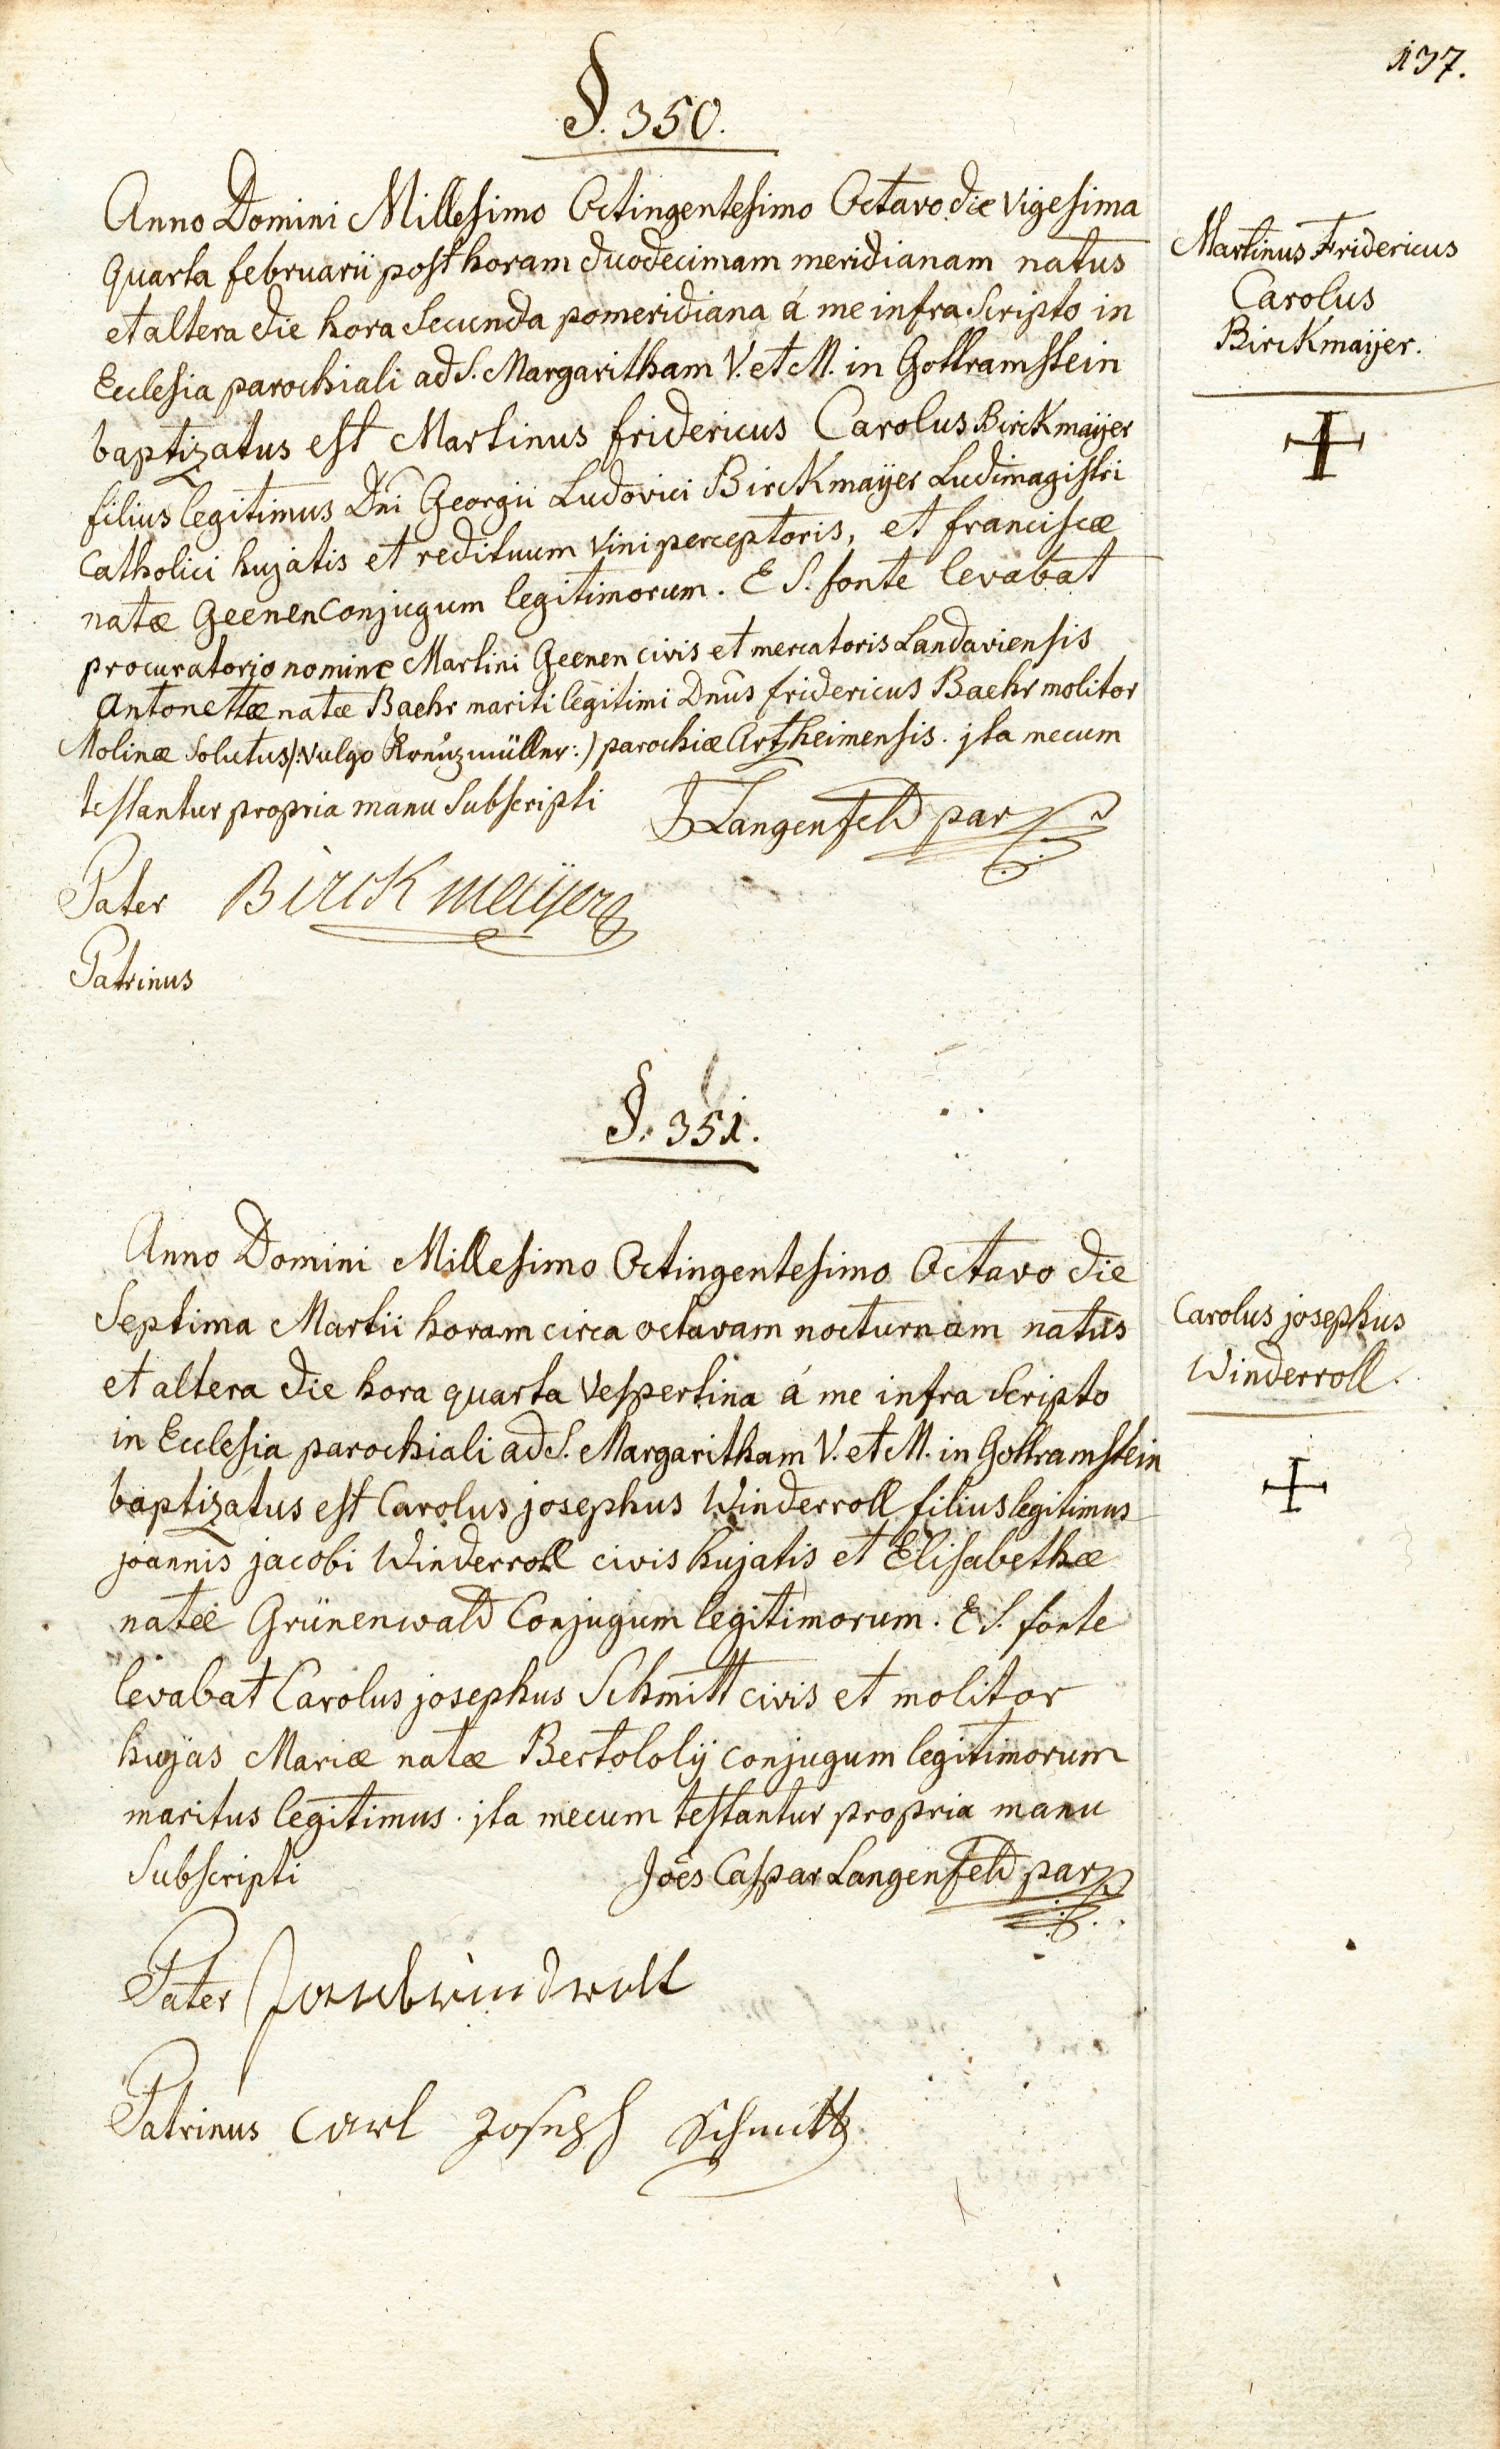 137.
§. 350.
Anno Domini Millesimo Octingentesimo Octavo die vigesima
Quarta februarii post horam duodecimam meridianam natus
et altera die hora Secunda pomeridiana á me infra Scripto in
Ecclesia parochiali ad S. Margaritham V. et M. in Gottramstein
baptizatus est Martinus fridericus Carolus Birckmaÿer
filius legitimus Dni Georgii Ludovici Birckmaÿer Ludimagistri
Catholici hujatis et redituum vini perceptoris, et franciscæ
natæ Geenen conjugum legitimorum. E S. fonte levabat
procuratorio nomine Martini Geenen civis et mercatoris Landaviensis
Antonettæ natæ Baehr mariti legitimi Dnus fridericus Baehr molitor
Molinæ Solutus /: vulgo Kreuzmüller :) parochiæ Artzheimensis. jta mecum
testantur propria manu Subscripti
J Langenfeld par
Pater Birckmaÿer
Patrinus
Martinus Fridericus
Carolus
Birckmaÿer.
§. 351.
Anno Domini Millesimo Octingentesimo Octavo die
Septima Martii horam circa octavam nocturnam natus
et altera die hora quarta vespertina á me infra Scripto
in Ecclesia parochiali ad S. Margaritham V. et M. in Gottramstein
baptizatus est Carolus josephus Winderroll filius legitimus
joannis jacobi Winderroll civis hujatis et Elisabethæ
natæ Grünenwald Conjugum legitimorum. E S. fonte
levabat Carolus josephus Schmitt civis et molitor
hujas Mariæ natæ Bertololÿ conjugum legitimorum
maritus legitimus. jta mecum testantur propria manu
Subscripti
Joês Caspar Langenfeld par
Pater
Patrinus Carl Joseph Schmitt
Carolus josephus
Winderroll.